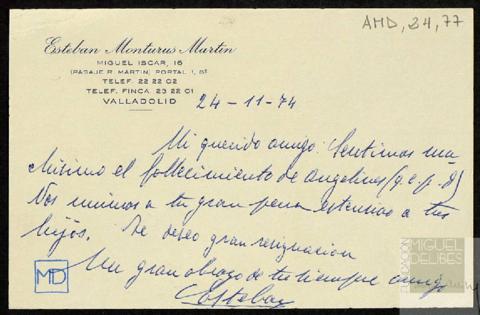 AMD, 34, 77
Esteban Monturus Martín
MIGUEL ISCAR, 16
(PASAJE R. MARTIN) PORTAL 1, 5º
TELEF. 22 22 02
TELEF. FINCA 23 22 01
VALLADOLID
24-11-74
Mi querido amigo: Sentimos mu-
chísimo el fallecimiento de Angelines (q.e.p.d)
Nos unimos a tu gran pena extensivo a tus
hijos. Te deseo gran resignación
Un gran abrazo de tu siempre amigo
Esteban
MD
FUNDACIÓN
MIGUEL
DELIBES